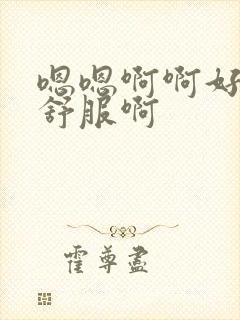 嗯嗯啊啊好
舒服啊
霍尊盡